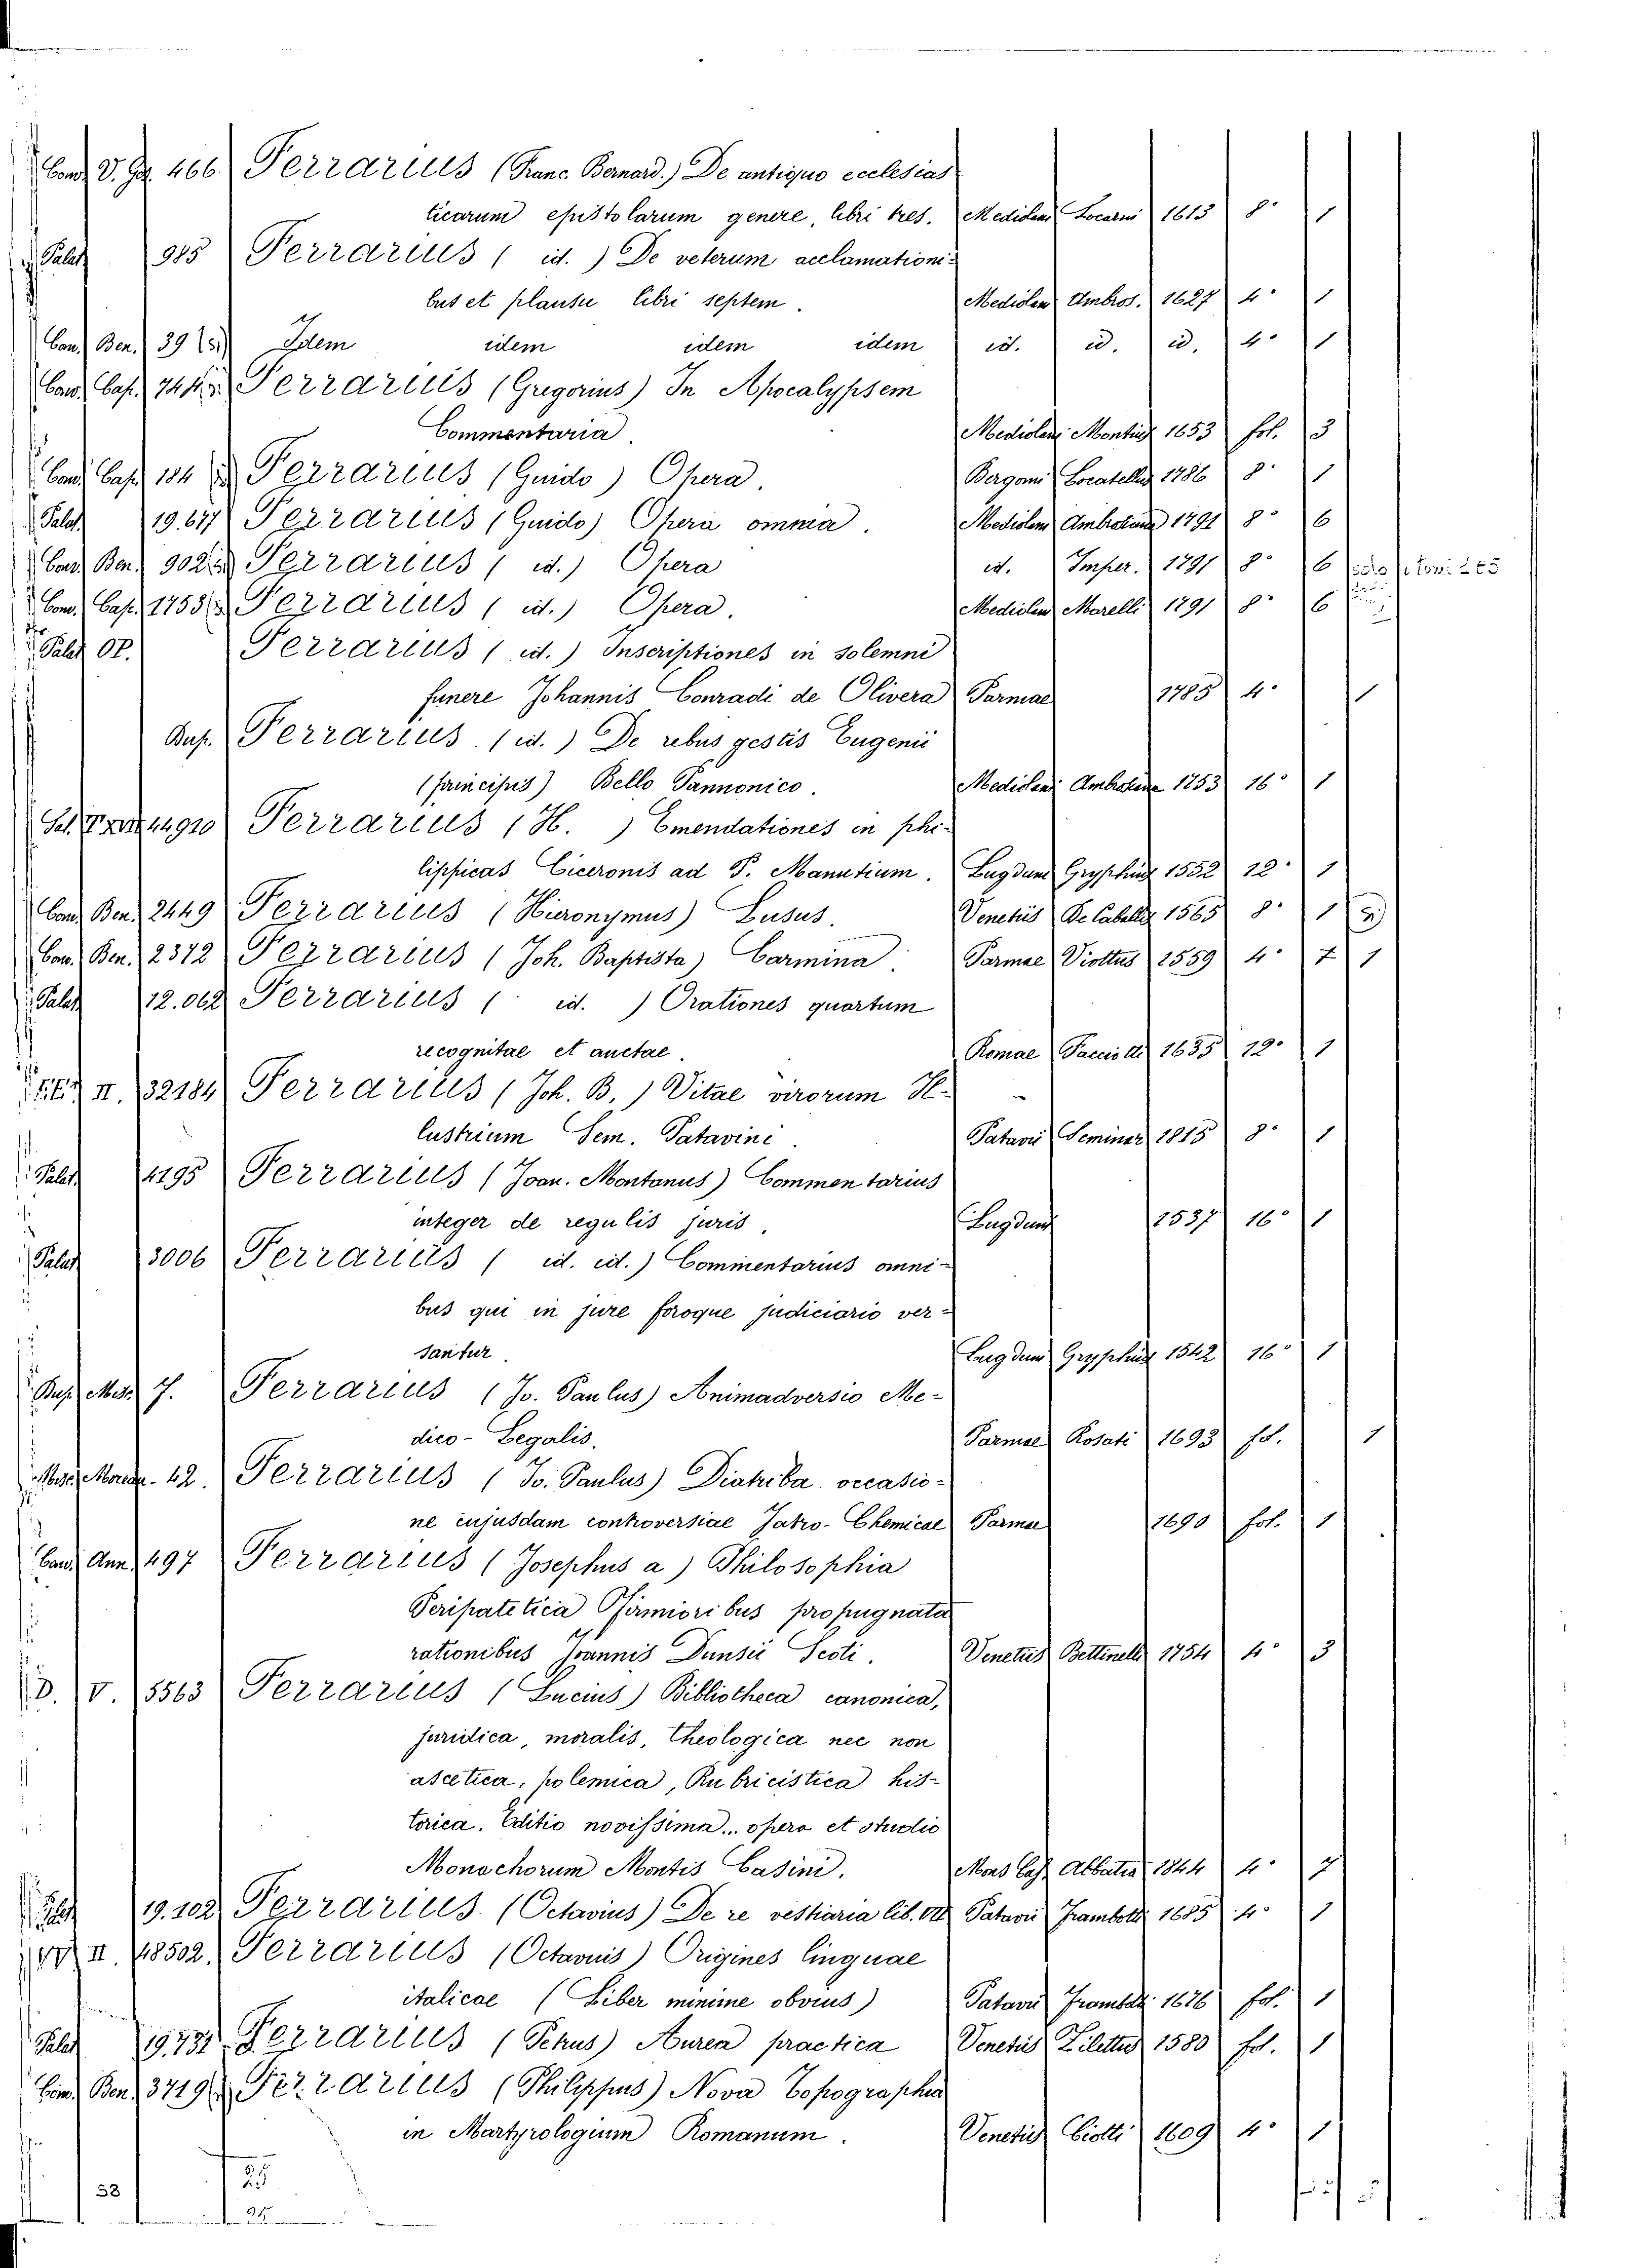 V. 466 Ferrarius (Franc. Bernard.) De antiquo ecclesias
ticarum epistolarum genere, libri tres. Mediolani Locarni 1613 8° 1
Palat 985 Ferrarius ( id. ) De veterum acclamationi-
bus et plausu libri septem. Mediolan Ambros. 1627 4° 1
Con. Ben. 39 Idem idem idem idem id. id. id. 4° 1
Con. Cap. Ferrarius (Gregorius) In Apocalypsem
Commentaria Mediolani 1653 fol. 3
Con. Cap. 184 Ferrarius (Guido) Opera. Bergomi Locatelli 1786 8° 1
Palat. 19.677 Ferrarius (Guido) Opera omnia. Mediolan. 1791 8° 6
Con. Ben. 902 Ferrarius ( id.) Opera id. Imper. 1791 8° 6
Con. Cap. 1753 Ferrarius ( id.) Opera. Mediolan Marelli 1791 8° 6
Palat OP. Ferrarius ( id. ) Inscriptiones in solemni
funere Johannis Conradi de Olivera Parmae 1785 4° 1
Dup. Ferrarius. (id. ) De rebus gestis Eugenii
(principis) Bello Pannonico. Mediolani 1753 16° 1
44910 Ferrarius (H. ) Emendationes in phi-
lippicas Ciceronis ad P. Manutium. Lugduni Gryphius 1552 12° 1
Con. Ben. 2449 Ferrarius (Hieronymus) Lusus. Venetiis 1565 8° 1
Con. Ben. 2372 Ferrarius (Joh. Baptista) Carmina. Parmae Viottus 1559 4° 1
Palat 12.062 Ferrarius ( id. ) Orationes quartum
recognitae et auctae. Romae 1635 12° 1
II. 32184 Ferrarius (Joh. B.) Vitae virorum Il-
lustrium Sem. Patavini. Patavii Seminar. 1815 8° 1
Palat. 4195 Ferrarius (Joan. Montanus) Commentarius
integer de regulis juris. Lugduni 1537 16° 1
Palat 3006 Ferrarius ( id. id.) Commentarius omni-
bus qui in jure foroque judiciario ver-
santur. Lugduni Gryphius 1542 16° 1
7. Ferrarius (Jo. Paulus) Animadversio Me-
dico-Legalis. Parmae Rosati 1693 fol. 1
42. Ferrarius (Jo. Paulus) Diatriba occasio-
ne cujusdam controversiae Jatro-Chemicae Parmae 1690 fol. 1
Con. Ann. 497 Ferrarius (Josephus a) Philosophia
Peripatetica firmioribus propugnata
rationibus Joannis Dunsii Scoti. Venetiis Bettinelli 1754 4° 3
D. V. 5563 Ferrarius (Lucius) Bibliotheca canonica,
juridica, moralis, Theologica nec non
ascetica, polemica, Rubricistica his-
torica. Editio novissima... opera et studio
Monachorum Montis Casini. Mons Cas. Abbatia 1844 4° 7
Palat 19.102 Ferrarius. (Octavius) De re vestiaria lib. VII Patavii Frambotti 1685 4° 1
II. 48502. Ferrarius (Octavius) Origines linguae
italicae (Liber minime obvius) Patavii Frambotti 1676 fol. 1
Palat 19.731 Ferrarius (Petrus) Aurea practica Venetiis Zilettus 1580 fol. 1
Con. Ben. 3719 Ferrarius (Philippus) Nova Topographia
in Martyrologium Romanum. Venetiis Ciotti 1609 4° 1
38 25